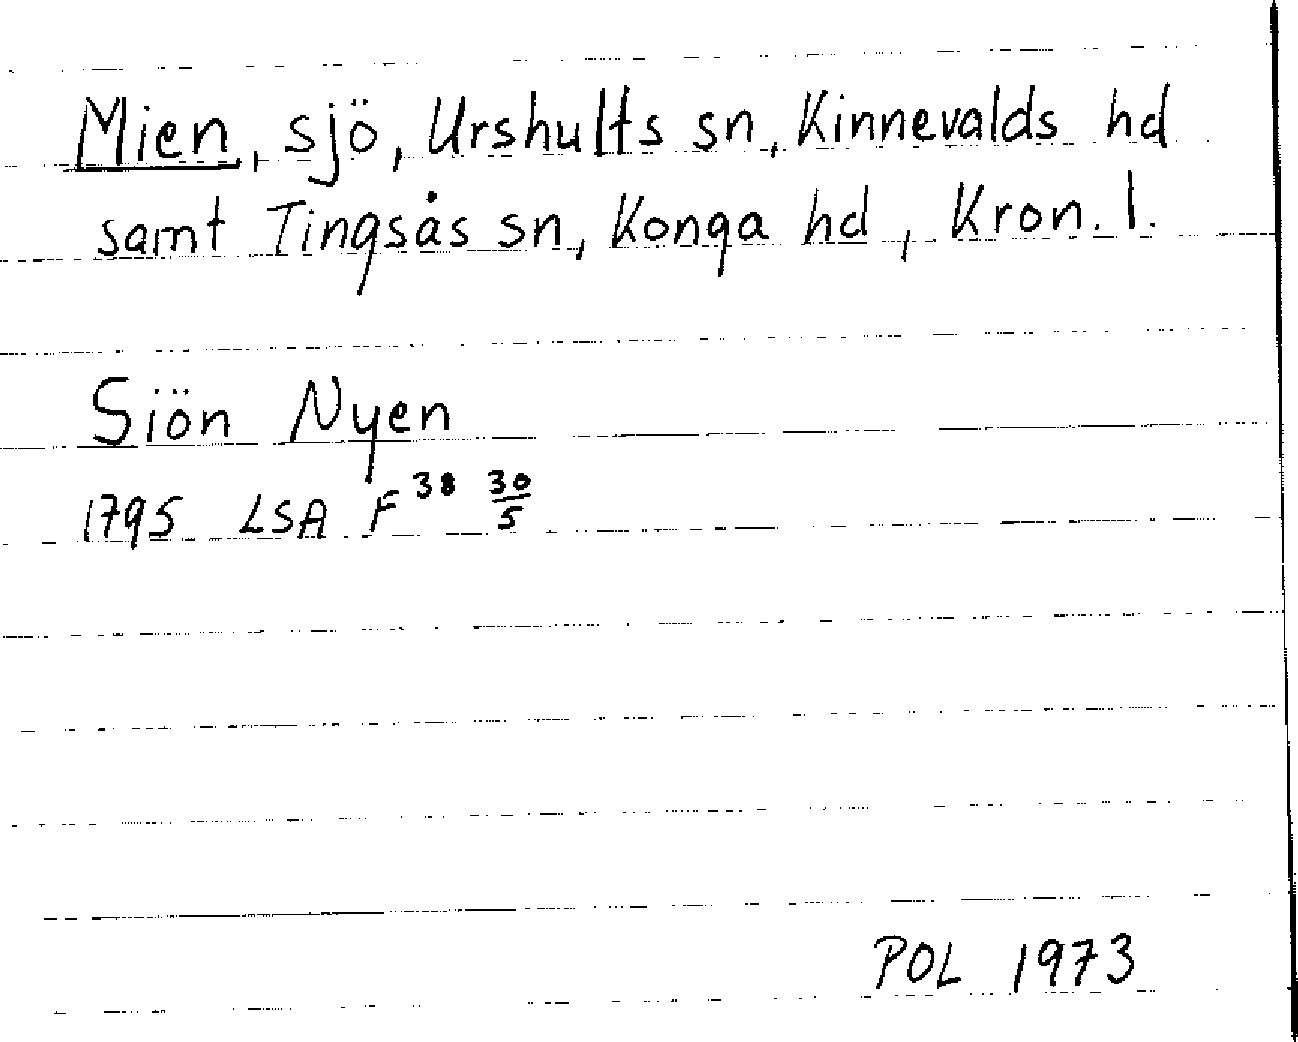 Mien, sjö, Urshults sn, Kinnevalds hd
samt Tingsås sn, Konga hd, Kron. l.
Siön Nyen
1795 LSA F 38 30/5
POL 1973